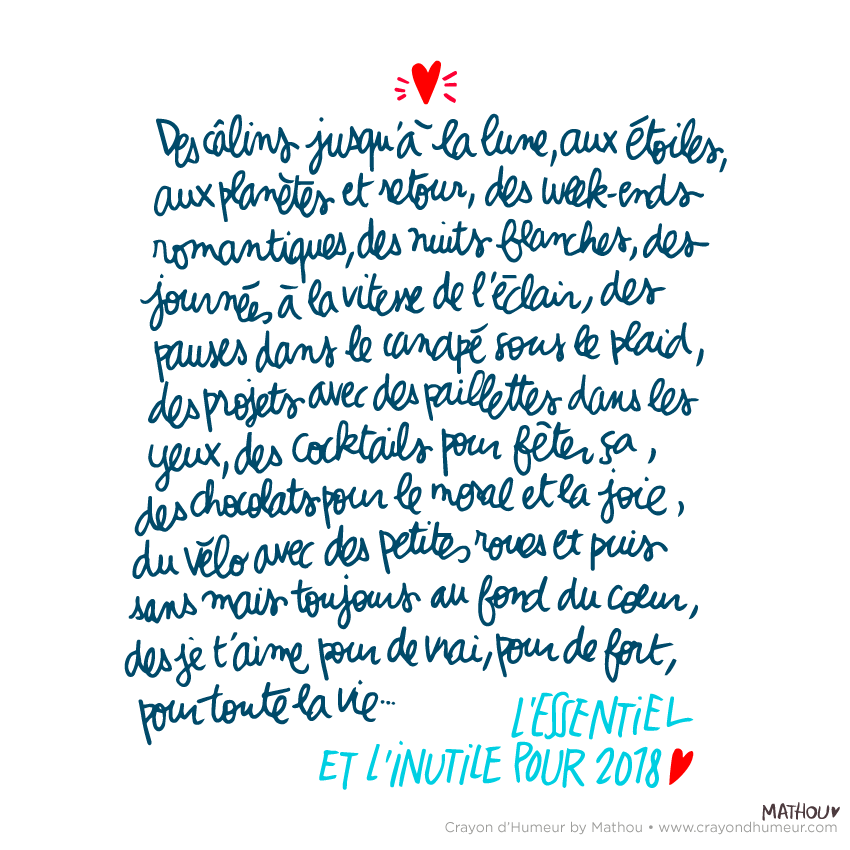 Des câlins jusqu'à la lune, aux étoiles,
aux planètes et retour, des week-ends
romantiques, des nuits blanches, des
journées à la vitesse de l'éclair, des
pauses dans le canapé sous le plaid,
des projets avec des paillettes dans les
yeux, des cocktails pour fêter ça,
des chocolats pour le moral et la joie,
du vélo avec des petites roues et puis
sans mais toujours au fond du cœur,
des je t'aime pour de vrai, pour de fort,
pour toute la vie...
L'ESSENTIEL
ET L'INUTILE POUR 2018
MATHOU
Crayon d'Humeur by Mathou • www.crayondhumeur.com